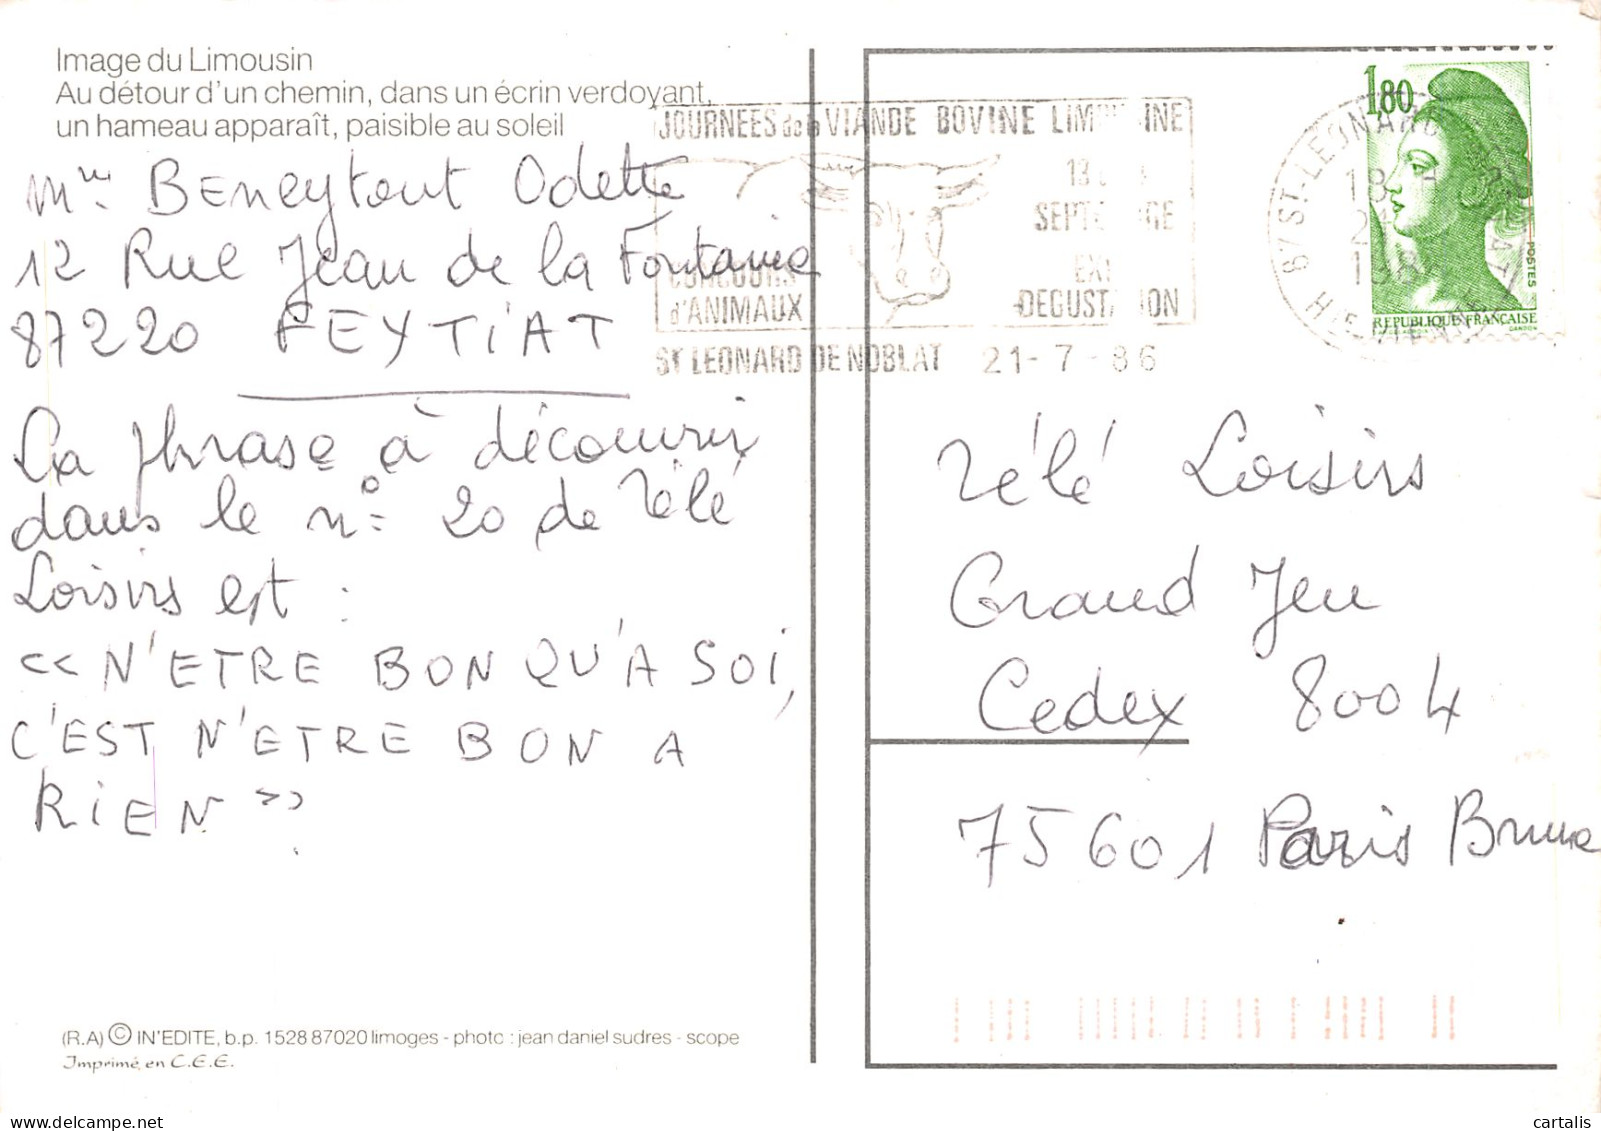 Image du Limousin
Au détour d'un chemin, dans un écrin verdoyant,
un hameau apparaît, paisible au soleil
Mme Beneytout Odette
12 Rue Jean de la Fontaine
87220 FEYTIAT
La phrase à découvrir
dans le n° 20 de Télé
Loisirs est :
<< N'ETRE BON QU'A SOI,
C'EST N'ETRE BON A
RIEN >>
(R.A) © IN'EDITE, b.p. 1528 87020 limoges - photo : jean daniel sudres - scope
Imprimé en C.E.E.
JOURNEES de la VIANDE BOVINE
13
SEPT
CONCOURS
d'ANIMAUX
ST LEONARD DE NOBLAT 21-7-86
87 ST-LEONARD
18
1,80
POSTES
REPUBLIQUE FRANCAISE
GANDON
Télé Loisirs
Grand Jeu
Cedex 8004
75601 Paris Brune
cartalis
delcampe.net